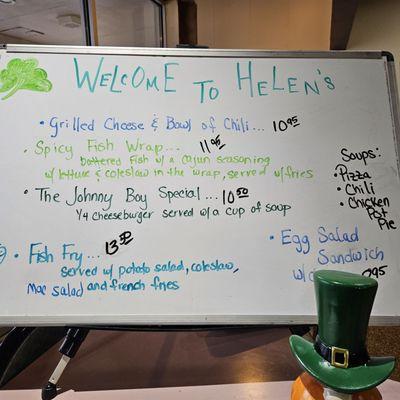 WELCOME TO HELEN'S
• Grilled Cheese & Bowl of Chili... 10.95
• Spicy Fish Wrap... 11.95
battered Fish w/ a cajun seasoning
w/ lettuce & coleslaw in the wrap, served w/ fries
• The Johnny Boy Special... 10.50
1/4 cheeseburger served w/ a cup of soup
• Fish Fry... 13.50
served w/ potato salad, coleslaw,
Mac salad and french fries
Soups:
• Pizza
• Chili
• Chicken
Pot
Pie
• Egg Salad
Sandwich